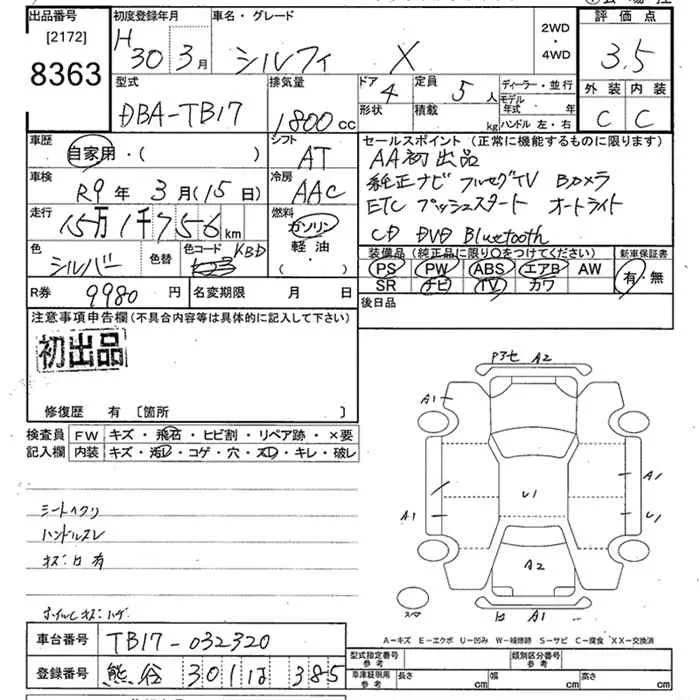 出品番号 初度登録年月 車名・グレード 評価点
[2172] H30年 3月 シルフィ X 2WD・4WD 3.5
8363
型式 排気量 ドア 4 定員 5人 ディーラー・並行 外装 内装
DBA-TB17 1800cc 形状 積載 kg モデル年式 年 C C
ハンドル 左・右
車歴 シフト セールスポイント (正常に機能するものに限ります)
自家用・( ) AT AA初出品
車検 冷房 純正ナビ フルセグTV Bカメラ
R9年 3月(15日) AAC ETC プッシュスタート オートライト
走行 燃料 CD DVD Bluetooth
15万1千756km ガソリン
軽油・
( )
色 色替 色コード KBD
シルバー
装備品 (純正品に限り○をつけてください) 新車保証書
PS PW ABS エアB AW 有・無
SR ナビ TV カワ
R券 9980円 名変期限 月 日 後日品
注意事項申告欄(不具合内容等は具体的に記入して下さい)
初出品
修復歴 有 〔箇所 〕
検査員 FW キズ・飛石・ヒビ割・リペア跡・×要
記入欄 内装 キズ・汚レ・コゲ・穴・スレ・キレ・破レ
シートヘタリ
ハンドルスレ
ホイルキズ・ハゲ
A2
A1
A1
U1
A1
U1
A2
スペア
A1
A-キズ E-エクボ U-凹み W-補修跡 S-サビ C-腐食 XX-交換済
車台番号 TB17-032320
登録番号 熊谷 301 は 385
型式指定番号 参考 類別区分番号 参考
車庫証明用 参考 長さ cm 幅 cm 高さ cm